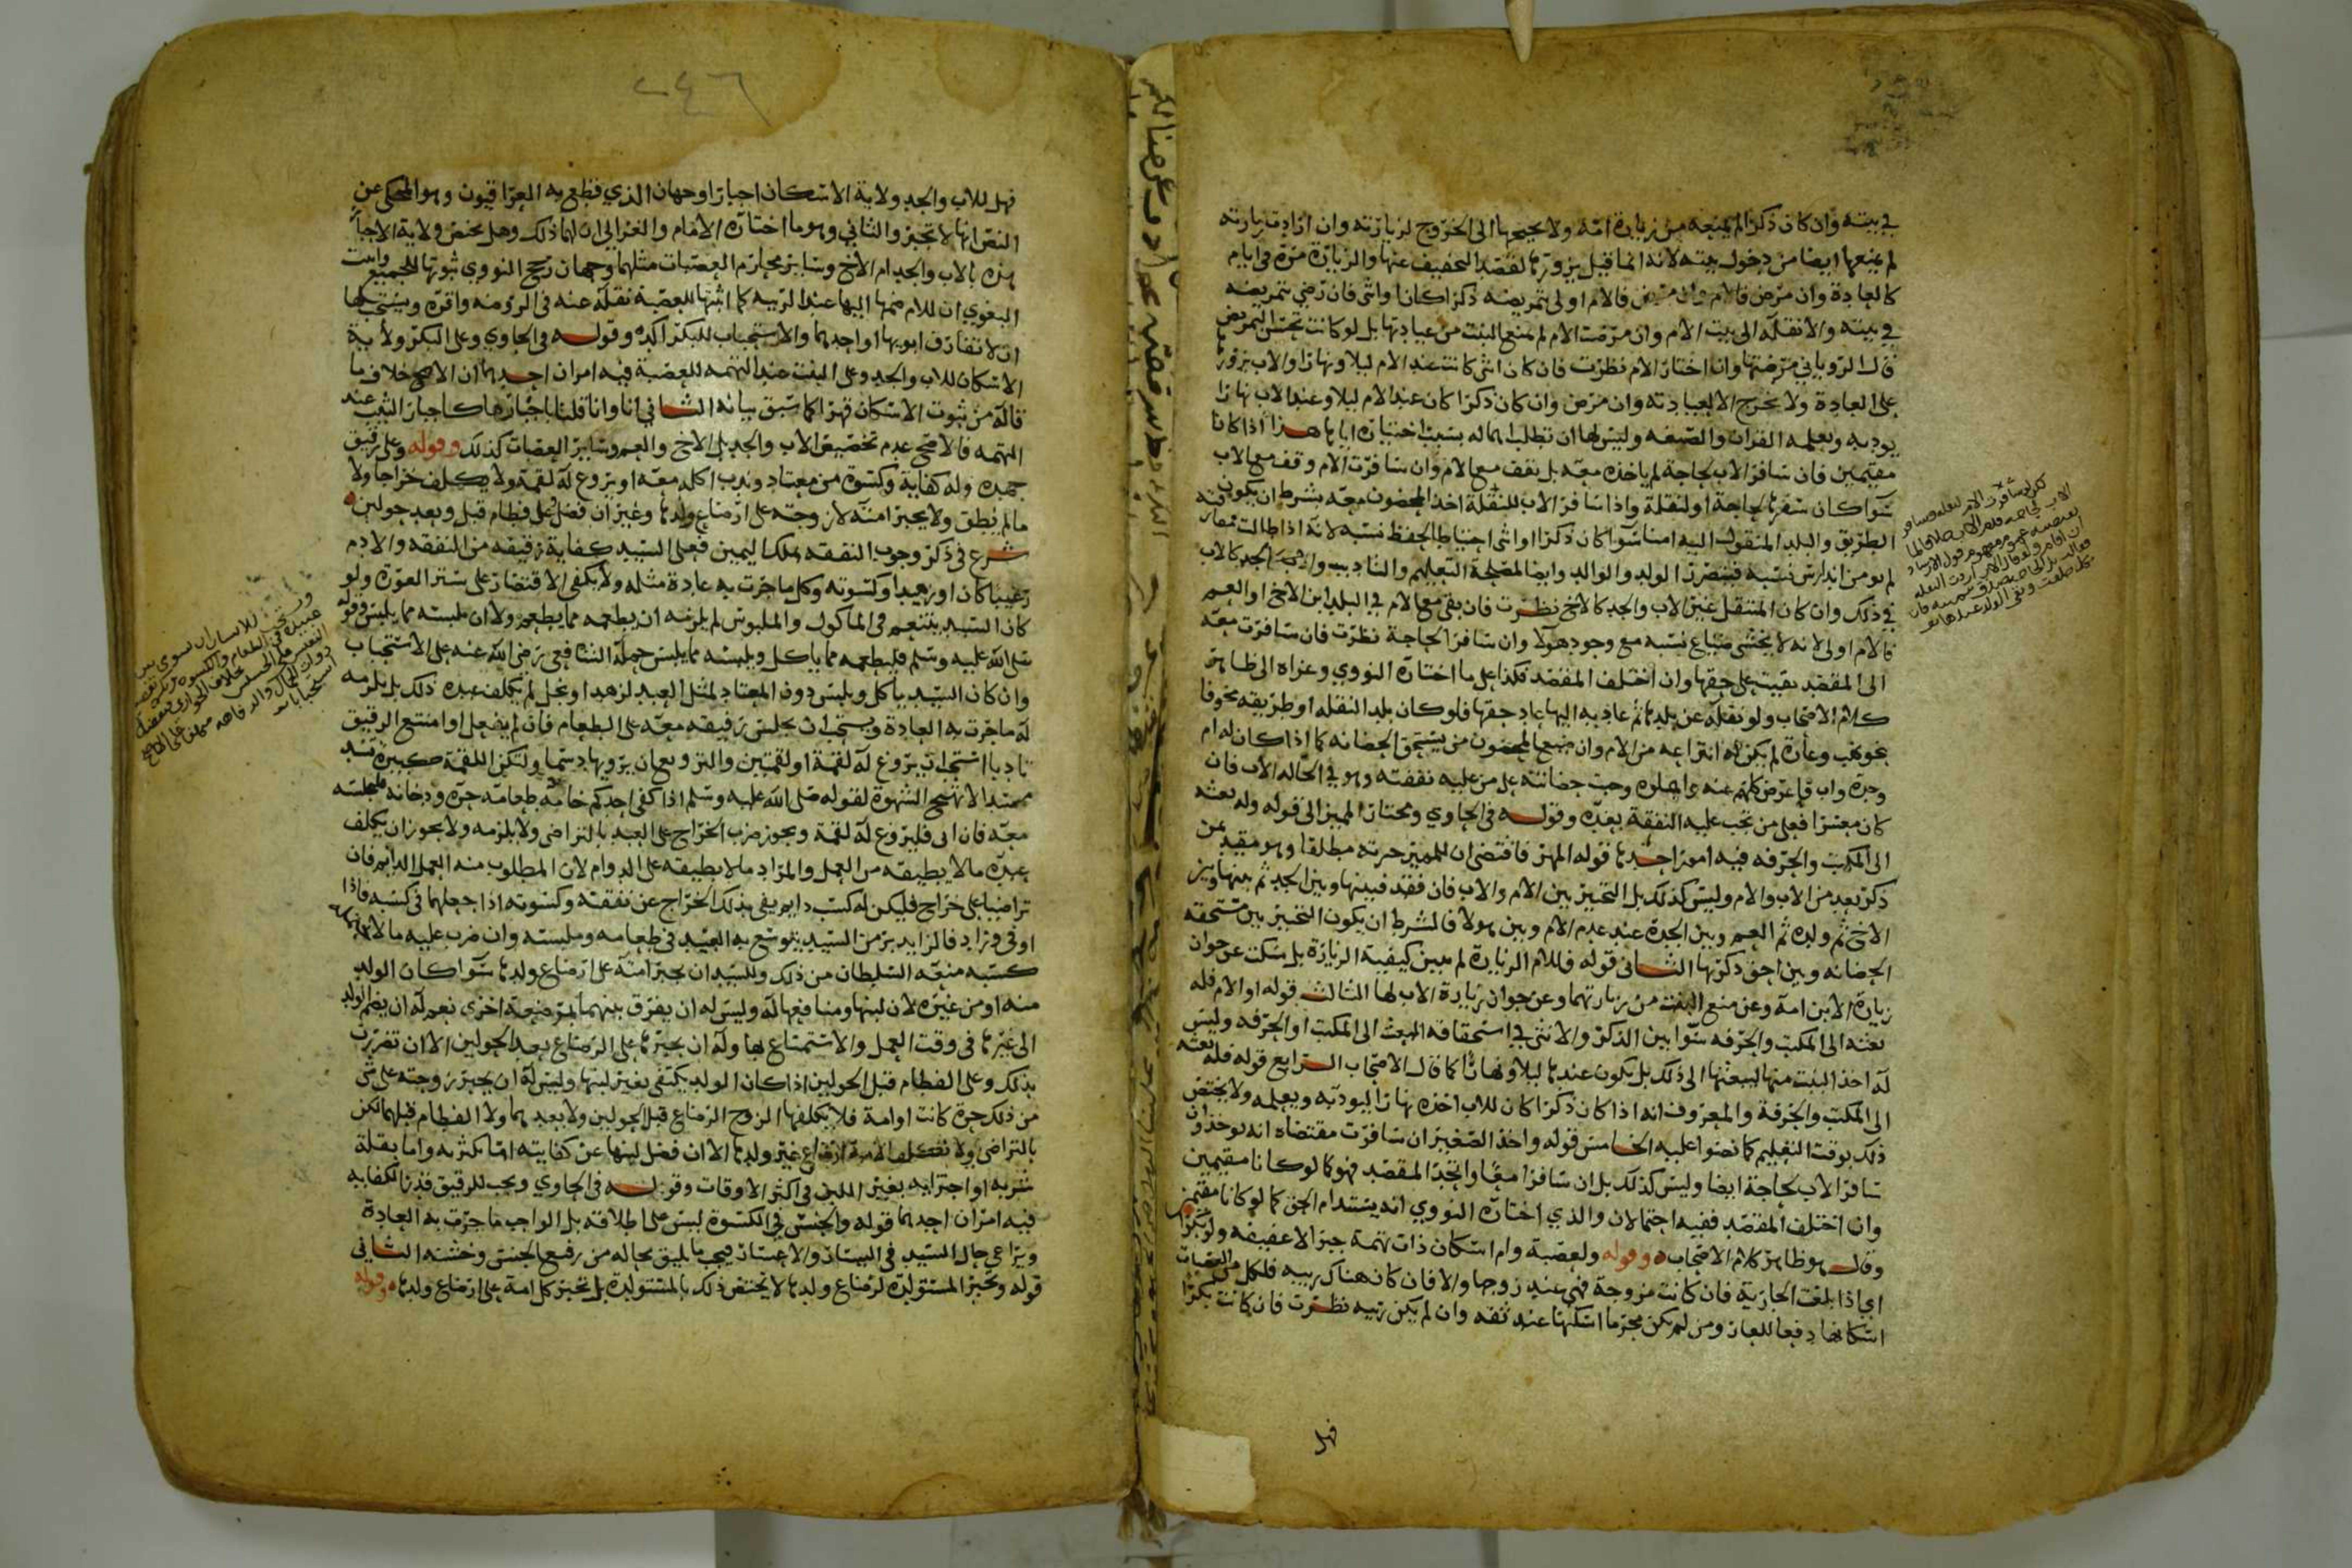 في بيته وان كان ذكرا لم يمنعه من زيارة امه ولا يحوجها الى الخروج لزيارته وان ارادت زيارته
لم يمنعها ايضا من دخول بيته لانه انما قبل بزورتها لقصد التخفيف عنها والزيارة مرة في ايام
كالعادة وان مرض فالام اولى بتمريضه ذكرا كان او انثى فان رضي بتمريضه
في بيته والا نقله الى بيت الام وان مرضت الام لم يمنع البنت من عيادتها بل لو كانت تحسن التمريض
قال الروياني مرضتها وان اختار الام نظرت فان كان انثى كانت عند الام ليلا ونهارا والاب يزورها
على العادة ولا يخرج الا لعيادته وان مرض وان كان ذكرا كان عند الام ليلا وعند الاب نهارا
يودبه ويعلمه القران والصنعه وليس لها ان تطلب اهماله بسبب اختياره اياها هذا اذا كانا
مقيمين فان سافر الاب لحاجة لم ياخذه معه بل يقف مع الام وان سافرت الام وقف مع الاب
سوا كان سفرها لحاجة او لنقلة واذا سافر الاب للنقلة اخذ المحضون معه بشرط ان يكون فيه
الطريق والبلد المنقول اليه امنا سوا كان ذكرا او انثى احتياطا لحفظ نسبه لانه اذا طالت
لم يومن اندارس نسبه فيتضرر الولد والوالد وايضا لمصلحة التعليم والتاديب والجد كالاب
في ذلك وان كان المنتقل غير الاب والجد كالاخ نظرت فان بقي مع الام في البلد ابن الاخ او العم
فالام اولى لانه لا يخشى ضياع نسبه مع وجود هولا وان سافر الحاجة نظرت فان سافرت معه
الى المقصد بقيت على حقها وان اختلف المقصد فكذا على ما اختاره النووي وعزاه الى ظاهر
كلام الاصحاب ولو نقله عن بلدها ثم عاد به اليها عاد حقها فلو كان بلد النقله او طريقه مخوفا
نحو نهب وغارة لم يكن له انتزاعه من الام وان ضيع المحضون من يستحق الحضانه كما اذا كان له ام
وجدة واب فاعرض كلهم عنه واهملوه وجبت حضانته على من عليه نفقته وهو في الحاله الاب فان
كان معسرا فعلى من تجب عليه النفقة بعده وقوله في الحاوي ومختار المميز الى قوله وله بعثه
الى المكتب والحرفه فيه امور احدها قوله المميز فاقتضى ان للمميز خيرته مطلقا وهو مقيد بمن
ذكر بعد من الاب والام وليس كذلك بل التخيير بين الام والاب فان فقد فبينها وبين الجد ثم بينها وبين
الاخ ثم ولده ثم العم وبين الجدة عند عدم الام وبين هولا فالشرط ان يكون التخيير بين مستحقه
الحضانه وبين احق ذكرتها الثاني قوله فللام الزيارة لم يبين كيفية الزيارة بل سكت عن جواز
زيارة الابن امه وعن منع البنت من زيارتهما وعن جواز زيارة الاب لها الثالث قوله او الام فله
بعثه الى المكتب والحرفه سوا بين الذكر والانثى في استحقاقه البعث الى المكتب او الحرفه وليس
له اخذ البنت منها ليبعثها الى ذلك بل يكون عندها ليلا ونهارا كما قال الاصحاب الرابع قوله فله بعثه
الى المكتب والحرفة والمعروف انه اذا كان ذكرا كان للاب اخذه نهارا ليودبه ويعلمه ولا يختص
ذلك بوقت التعليم كما نصوا عليه الخامس قوله واخذ الصغير ان سافرت مقتضاه انه يوخذ وان
سافر الاب لحاجة ايضا وليس كذلك بل ان سافرا معا واتحدا المقصد فهو كما لو كانا مقيمين
وان اختلف المقصد ففيه احتمالان والذي اختاره النووي انه يستدام الحق كما لو كانا مقيمين
وقال هو ظاهر كلام الاصحاب وقوله ولعصبة وام اسكان ذات تهمة جبرا لا عفيفه ولو بكرا
اي اذا بلغت الجارية فان كانت مزوجة فهي عند زوجها والا فان كان هناك ريبه فلكل من العصبات
اسكانها دفعا للعار ومن لم يكن محرما اسكنها عند ثقه وان لم يكن ريبه نظرت فان كانت بكرا
فهل
٢٤٦
فهل للاب والجد ولاية الاسكان اجبارا وجهان الذي قطع به العراقيون وهو المحكى عن
النص انها لا تجبر والثاني وهو ما اختاره الامام والغزالي ان لهما ذلك وهل يختص ولاية الاجبار
هذه بالاب والجد ام الاخ وساير محارم العصبات مثلهما وجهان رجح النووي ثبوتها للجميع واثبت
البغوي ان للام ضمها اليها عند الريبه كما اثبتها للعصبة نقله عنه في الروضه واقره ويستحب لها
ان لا تفارق ابويها او احدهما والاستحباب للبكر اكده وقوله في الحاوي وعلى البكر ولاية
الاسكان للاب والجد وعلى البنت عند التهمه للعصبة فيه امران احدهما ان الاصح خلاف ما
قاله من ثبوت الاسكان قهرا كما سبق بيانه الثاني انا وان قلنا باجبارها كاجبار الثيب عند
التهمه فالاصح عدم تخصيص الاب والجد بل الاخ والعم وساير العصبات كذلك وقوله وعلى رقيق
جهده وله كفاية وكسوة من معتاد وندب اكله معه او يروغ له لقمة ولا يكلف خراجا ولا
مالم يطق ولا يجبر امته لا زوجته على ارضاع ولدها وغير ان فضل وعلى فطام قبل وبعد حولين
شرع في ذكر وجوب النفقه بملك اليمين فعلى السيد كفاية رقيقه من النفقه والادم
رغيبا كان او زهيدا وكسوته وكل ما جرت به عادة مثله ولا يكفي الاقتصار على ستر العورة ولو
كان السيد يتنعم في الماكول والملبوس لم يلزمه ان يطعمه مما يطعم ولا ان يلبسه مما يلبس وقوله
صلى الله عليه وسلم فليطعمه مما ياكل ويلبسه مما يلبس حمله الشافعي رضي الله عنه على الاستحباب
وان كان السيد ياكل ويلبس دون المعتاد لمثل العبد لزهد او بخل لم يكلف عبده ذلك بل يلزمه
له ما جرت به العادة ويستحب ان يجلس رقيقه معه على الطعام فان لم يفعل او امتنع الرقيق
تادبا استحب ان يروغ له لقمة او لقمتين والترويغ ان يرويها دسما ولتكن اللقمة كبيرة تسد
مسدا لا تهيج الشهوة لقوله صلى الله عليه وسلم اذا كفى احدكم خادمه طعامه حره ودخانه فليجلسه
معه فان ابى فليروغ له لقمة ويجوز ضرب الخراج على العبد بالتراضي ولا يلزمه ولا يجوز ان يكلف
عبده ما لا يطيقه من العمل والمراد ما لا يطيقه على الدوام لان المطلوب منه العمل الدايم فان
تراضيا على خراج فليكن له كسب دايم يفي بذلك الخراج عن نفقته وكسوته اذا جعلهما في كسبه فاذا
اوفى وزاد فالزايد بر من السيد يتوسع به العبد في طعامه وملبسه وان ضرب عليه ما لا
كسبه منعه السلطان من ذلك وللسيد ان يجبر امته على ارضاع ولدها سوا كان الولد
منه او من غيره لان لبنها ومنافعها له وليس له ان يفرق بينهما بمرضعة اخرى نعم له ان يضم الولد
الى غيرها في وقت العمل والاستمتاع بها وله ان يجبرها على الرضاع بعد الحولين الا ان تضررت
بذلك وعلى الفطام قبل الحولين اذا كان الولد يكتفي بغير لبنها وليس له ان يجبر زوجته على شي
من ذلك حرة كانت او امة فلا يكلفها الزوج الرضاع قبل الحولين ولا بعدهما ولا الفطام قبلهما لكن
بالتراضي ولا تكلف الامة ارضاع غير ولدها الا ان فضل لبنها عن كفايته اما بكثرته واما بقلة
شربه او اجترايه بغير اللبن في اكثر الاوقات وقوله في الحاوي ويجب للرقيق قدر الكفايه
فيه امران احدهما قوله والجنس في الكسوة ليس على اطلاقه بل الواجب ما جرت به العادة
ويراعي حال السيد في اليسار والاعسار فيجب ما يليق بحاله من رفيع الجنس وخشنه الثاني
قوله وتجبر المستولدة لرضاع ولدها لا يختص ذلك بالمستولدة بل تجبر كل امة على ارضاع ولدها وقوله